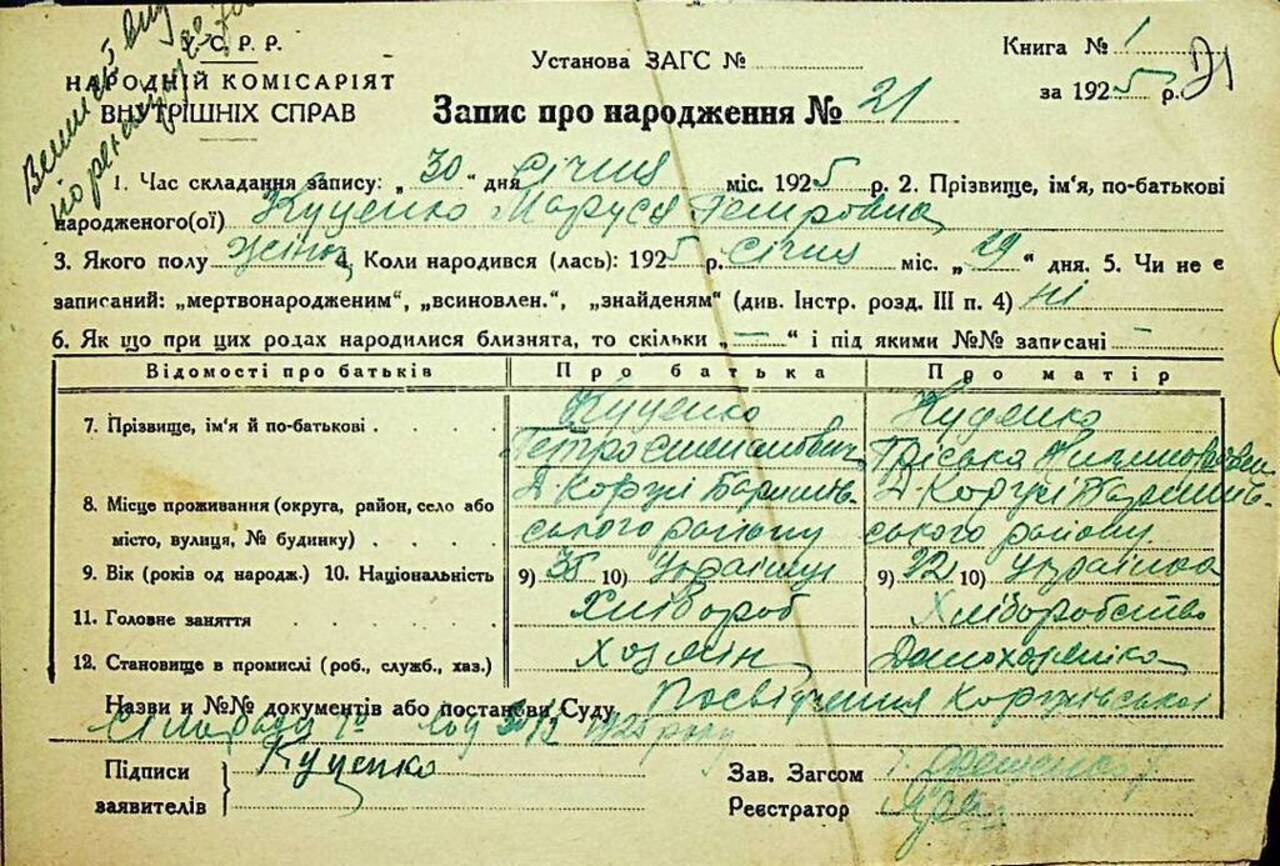 У.С.Р.Р.
НАРОДНІЙ КОМІСАРІЯТ
ВНУТРІШНІХ СПРАВ
Установа ЗАГС №
Книга № 1
за 1925 р.
Запис про народження № 21
1. Час складання запису: „30“ дня Січня міс. 1925 р. 2. Прізвище, ім'я, по-батькові
народженого(ої) Куценко Маруся Петровна
3. Якого полу жіноч 4. Коли народився (лась): 1925 р. Січня міс. „29“ дня. 5. Чи не є
записаний: „мертвонародженим“, „всиновлен.“, „знайденям“ (див. Інстр. розд. III п. 4) ні
6. Як що при цих родах народилися близнята, то скільки „—“ і під якими №№ записані —
Відомості про батьків Про батька Про матір
7. Прізвище, ім'я й по-батькові Куценко Куценко
Петро Степанович Пріська
8. Місце проживання (округа, район, село або Д. Коржі Баришів- Д. Коржі Баришів-
місто, вулиця, № будинку) ського району ського району.
9. Вік (років од народж.) 10. Національність 9) 35 10) Українц 9) 22 10) Українка
11. Головне заняття Хлібороб Хліборобство
12. Становище в промислі (роб., служб., хаз.) Хозяїн Домохозяйка
Назви и №№ документів або постанови Суду Посвідчення Коржівської
Сільради 1925 року
Підписи
заявителів
Куценко
Зав. Загсом
Реєстратор